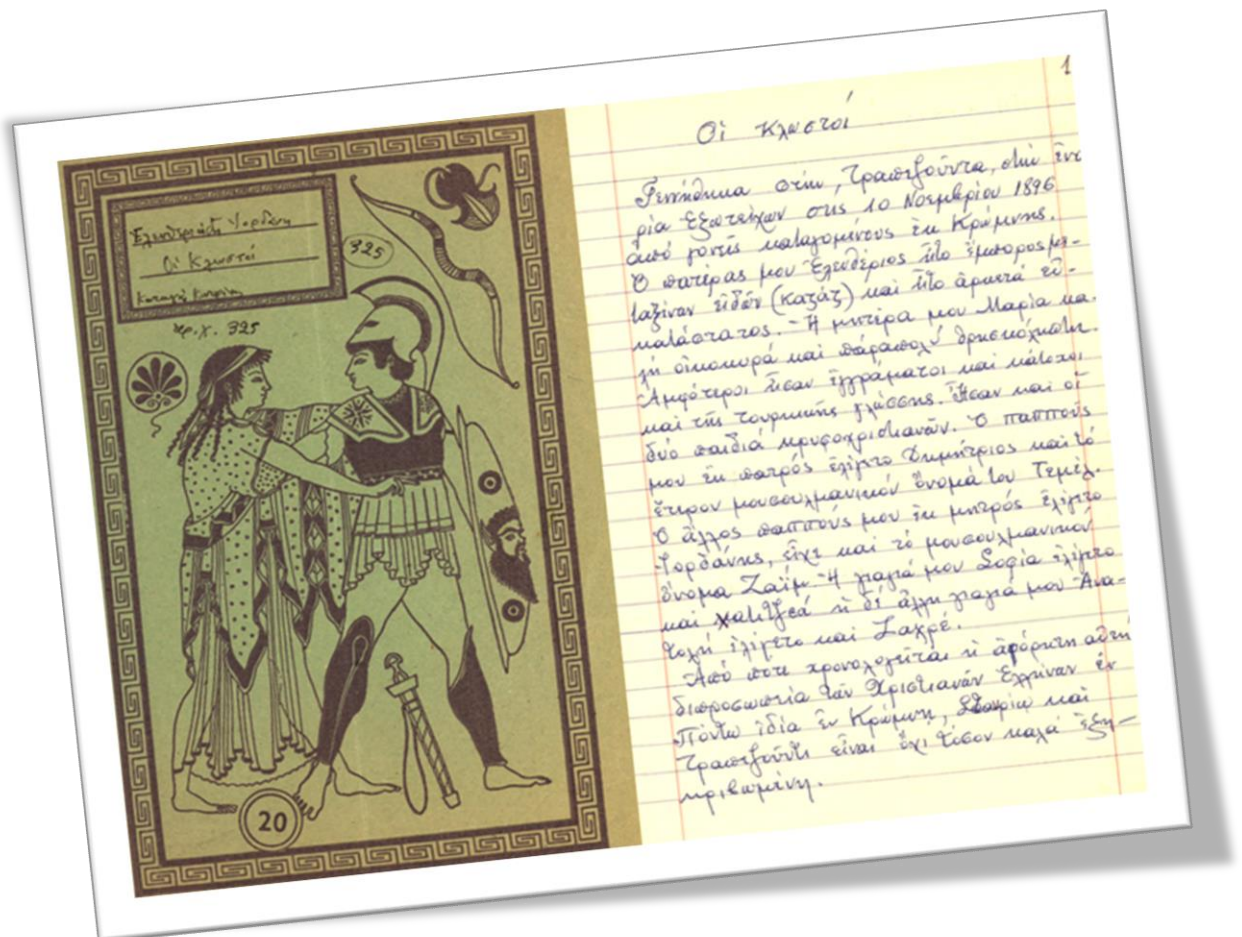 Ἐλευθεριάδη Ἰορδάνη
Οἱ Κλωστοί
325
ἀρ. χ. 325
20
1
Οἱ Κλωστοί
Γεννήθηκα στήν, Τραπεζοῦντα, στήν ἐνο
ρία Ἐξωτείχων στις 10 Νοεμβρίου 1896
ἀπό γονεῖς καταγομένους ἐκ Κρώμνης.
Ὁ πατέρας μου Ἐλευθέριος ἦτο ἔμπορος με-
ταξίνων εἰδῶν (καζάζ) καί ἦτο ἀρκετά εὐ-
κατάστατος. Ἡ μητέρα μου Μαρία κα.
λή οἰκοκυρά καί πάραπολύ θρησκόληπτη.
Ἀμφότεροι ἦσαν ἐγγράματοι καί κάτοχοι
καί τῆς τουρκικῆς γλώσσης. Ἦσαν καί οἱ
δύο παιδιά κρυφοχριστιανῶν. Ὁ παππούς
μου ἐκ πατρός ἐλέγετο Δημήτριος καί τό
ἕτερον μουσουλμανικόν ὄνομά του Τεμέλ.
Ὁ ἄλλος παππούς μου ἐκ μητρός ἐλέγετο
Ἰορδάνης, εἶχε καί τό μουσουλμανικόν
ὄνομα Ζαΐμ. Ἡ γιαγιά μου Σοφία ἐλέγετο
καί Χατιτζεά ἡ δέ ἄλλη γιαγιά μου Ἀνα-
τολή ἐλέγετο καί Ζαχρέ.
Ἀπό πότε χρονολογεῖται ἡ ἀφόρητη αὐτή
διπροσωπεία τῶν Χριστιανῶν Ἑλλήνων ἐν
Πόντῳ ἰδίᾳ ἐν Κρώμνῃ, Σταυρίῳ καί
Τραπεζοῦντι εἶναι ὄχι τόσον καλά ἐξη-
κριβωμένη.